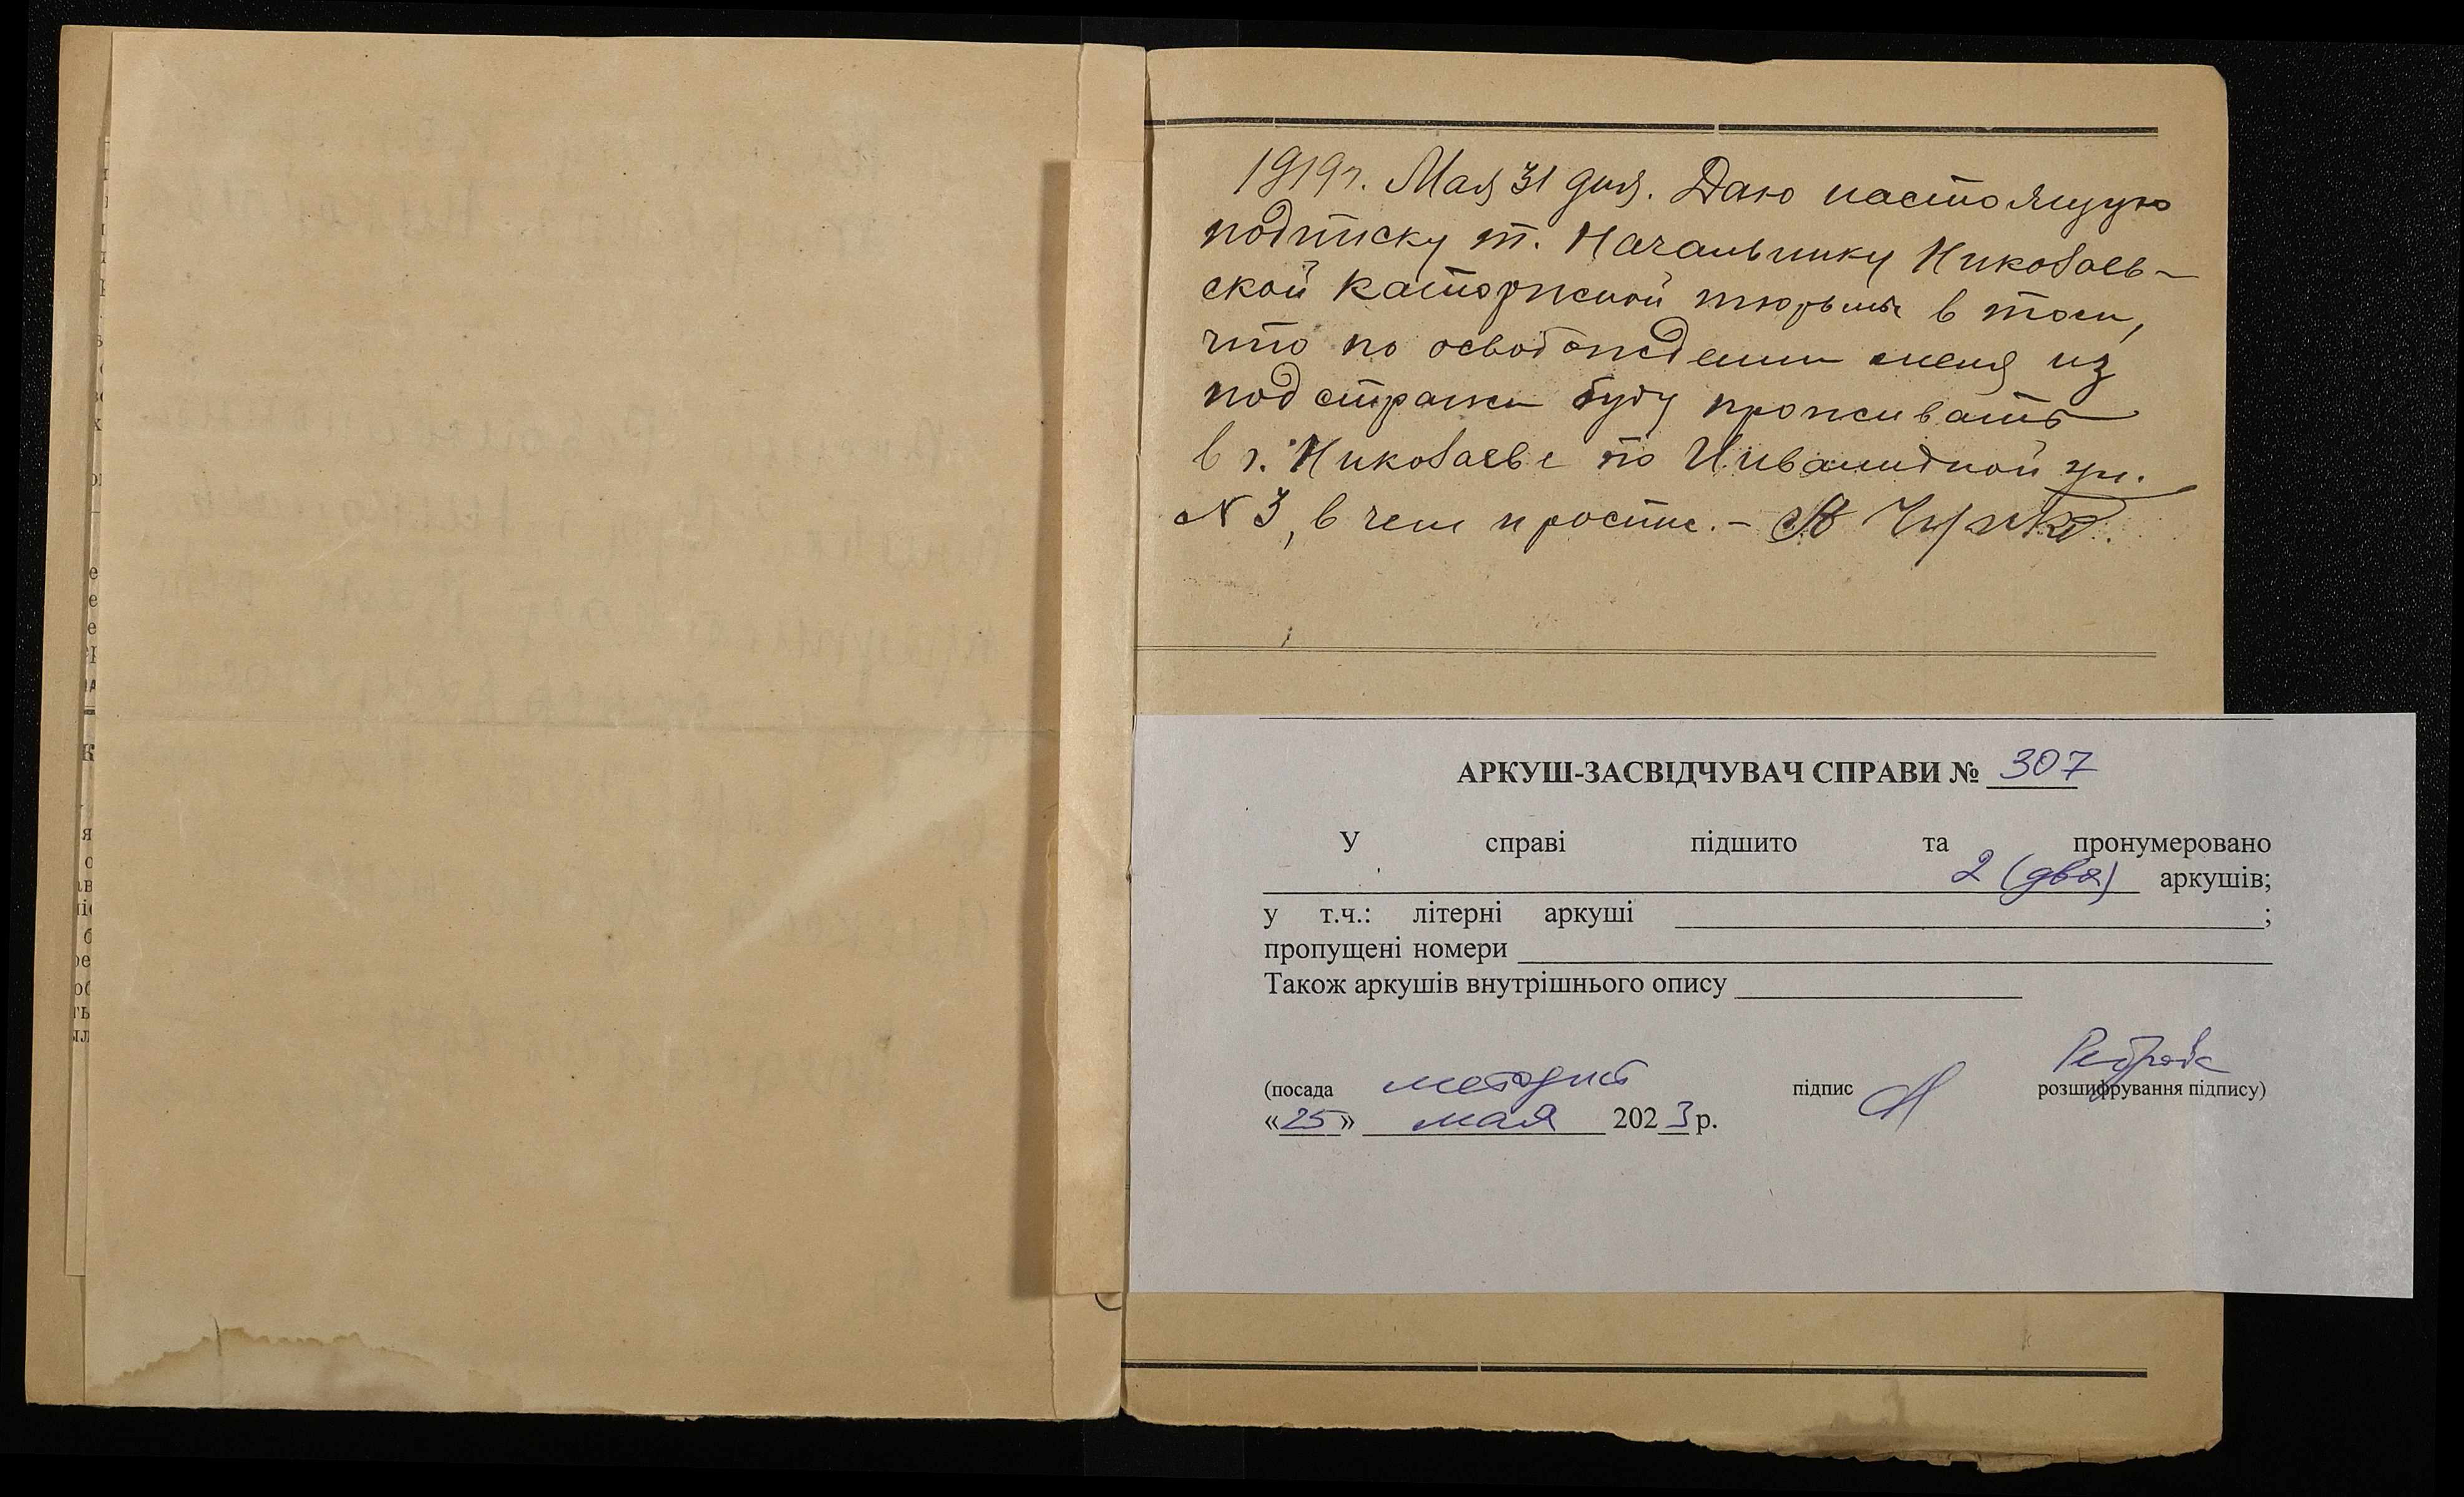 1919 г. Мая 31 дня. Даю настоящую
подписку т. Начальнику Николаев-
ской каторжной тюрьмы в том,
что по освобождении меня из
под стражи буду проживать
в г. Николаеве по Инвалидной ул.
N 3, в чем и роспис. –
АРКУШ-ЗАСВІДЧУВАЧ СПРАВИ № 307
У справі підшито та пронумеровано
2 (два) аркушів;
у т.ч.: літерні аркуші ;
пропущені номери
Також аркушів внутрішнього опису
(посада методист підпис розшифрування підпису)
«25» мая 2023 р.